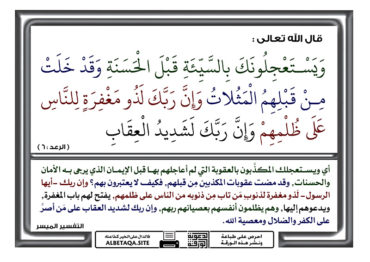 قال الله تعالى :
وَيَسْتَعْجِلُونَكَ بِالسَّيِّئَةِ قَبْلَ الْحَسَنَةِ وَقَدْ خَلَتْ
مِنْ قَبْلِهِمُ الْمَثُلَاتُ وَإِنَّ رَبَّكَ لَذُو مَغْفِرَةٍ لِلنَّاسِ
عَلَى ظُلْمِهِمْ وَإِنَّ رَبَّكَ لَشَدِيدُ الْعِقَابِ
( الرعد : ٦ )
أي ويستعجلك المكذِّبون بالعقوبة التي لم أعاجلهم بها قبل الإيمان الذي يرجى به الأمان
والحسنات, وقد مضت عقوبات المكذبين مِن قبلهم, فكيف لا يعتبرون بهم؟ وإن ربك -أيها
الرسول- لَذو مغفرة لذنوب مَن تاب مِن ذنوبه من الناس على ظلمهم, يفتح لهم باب المغفرة,
ويدعوهم إليها, وهم يظلمون أنفسهم بعصيانهم ربهم, وإن ربك لشديد العقاب على مَن أصرَّ
على الكفر والضلال ومعصية الله.
التفسير الميسر
احرص على طباعة
ونشر هذه الورقة
فالدال على الخير كفاعله
ALBETAQA.SITE